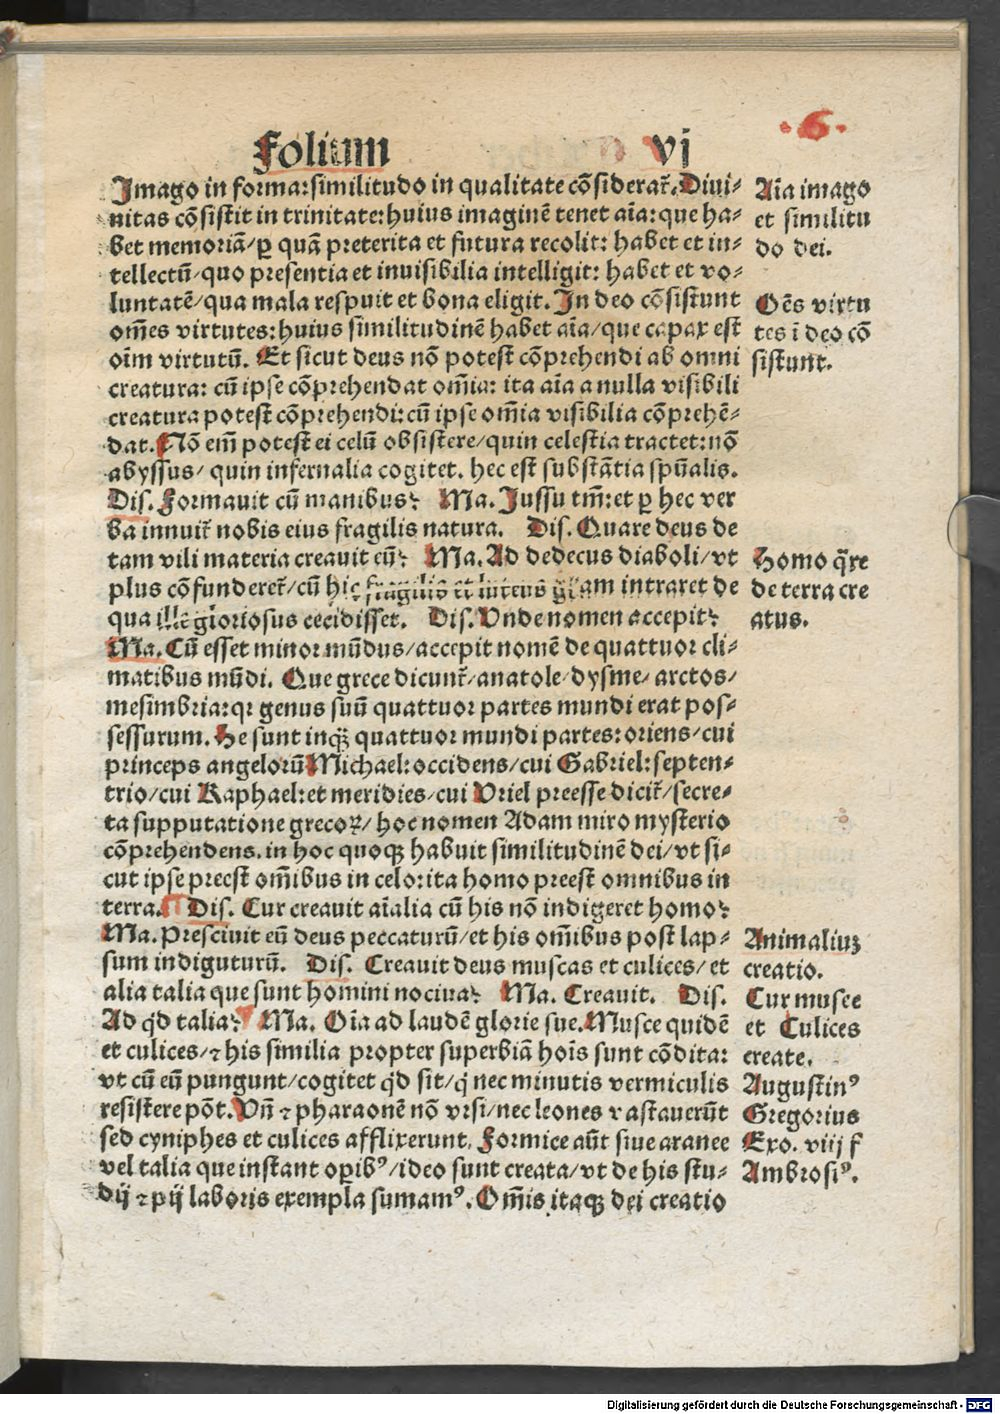 Folium vj
·6·
Imago in forma: similitudo in qualitate cōsiderat̄. Diui-
nitas cōsistit in trinitate: huius imaginē tenet aīa: que ha-
bet memoriā/ ꝑ quā preterita et futura recolit: habet et in-
tellectū/ quo presentia et inuisibilia intelligit: habet et vo-
luntatē/ qua mala respuit et bona eligit. In deo cōsistunt
om̄es virtutes: huius similitudinē habet aīa/ que capax est
oīm virtutū. Et sicut deus nō potest cōprehendi ab omni
creatura: cū ipse cōprehendat om̄ia: ita aīa a nulla visibili
creatura potest cōprehendi: cū ipse om̄ia visibilia cōprehē-
dat. Nō em̄ potest ei celū obsistere/ quin celestia tractet: nō
abyssus/ quin infernalia cogitet. hec est substātia spūalis.
Dis. Formauit cū manibus? Ma. Jussu tm̄: et ꝑ hec ver
ba innuit̄ nobis eius fragilis natura. Dis. Quare deus de
tam vili materia creauit eū? Ma. Ad dedecus diaboli/ vt
plus cōfunderet̄/ cū hic fragilis et luteus gl̄iam intraret de
qua ille gloriosus cecidisset. Dis. Vnde nomen accepit?
Ma. Cū esset minor mūdus/ accepit nomē de quattuor cli-
matibus mūdi. Que grece dicunt̄/ anatole/ dysme/ arctos/
mesimbria: qꝛ genus suū quattuor partes mundi erat pos-
sessurum. He sunt inqꝫ quattuor mundi partes: oriens/ cui
princeps angelorū Michael: occidens/ cui Gabriel: septen-
trio/ cui Raphael: et meridies/ cui Vriel preesse dicit̄/ secre-
ta supputatione grecoꝝ/ hoc nomen Adam miro mysterio
cōprehendens. in hoc quoqꝫ habuit similitudinē dei/ vt si-
cut ipse preest om̄ibus in celo: ita homo preest omnibus in
terra. Dis. Cur creauit aīalia cū his nō indigeret homo?
Ma. Presciuit eū deus peccaturū/ et his om̄ibus post lap-
sum indiguturū. Dis. Creauit deus muscas et culices/ et
alia talia que sunt homini nociua? Ma. Creauit. Dis.
Ad qd̄ talia? Ma. Oīa ad laudē glorie sue. Musce quidē
et culices/ ⁊ his similia propter superbiā hoīs sunt cōdita:
vt cū eū pungunt/ cogitet qd̄ sit/ q̇ nec minutis vermiculis
resistere pōt. Vn̄ ⁊ pharaonē nō vrsi/ nec leones vastauerūt
sed cyniphes et culices afflixerunt. Formice aūt siue aranee
vel talia que instant oꝑibꝰ/ ideo sunt creata/ vt de his stu-
dij ⁊ pij laboris exempla sumamꝰ. Om̄is itaqꝫ dei creatio
Aīa imago
et similitu
do dei.
Oēs virtu
tes ī deo cō
sistunt.
Homo q̄re
de terra cre
atus.
Animaliuꝫ
creatio.
Cur musce
et Culices
create.
Augustinꝰ
Gregorius
Exo. viij f
Ambrosiꝰ.
Digitalisierung gefördert durch die Deutsche Forschungsgemeinschaft - DFG